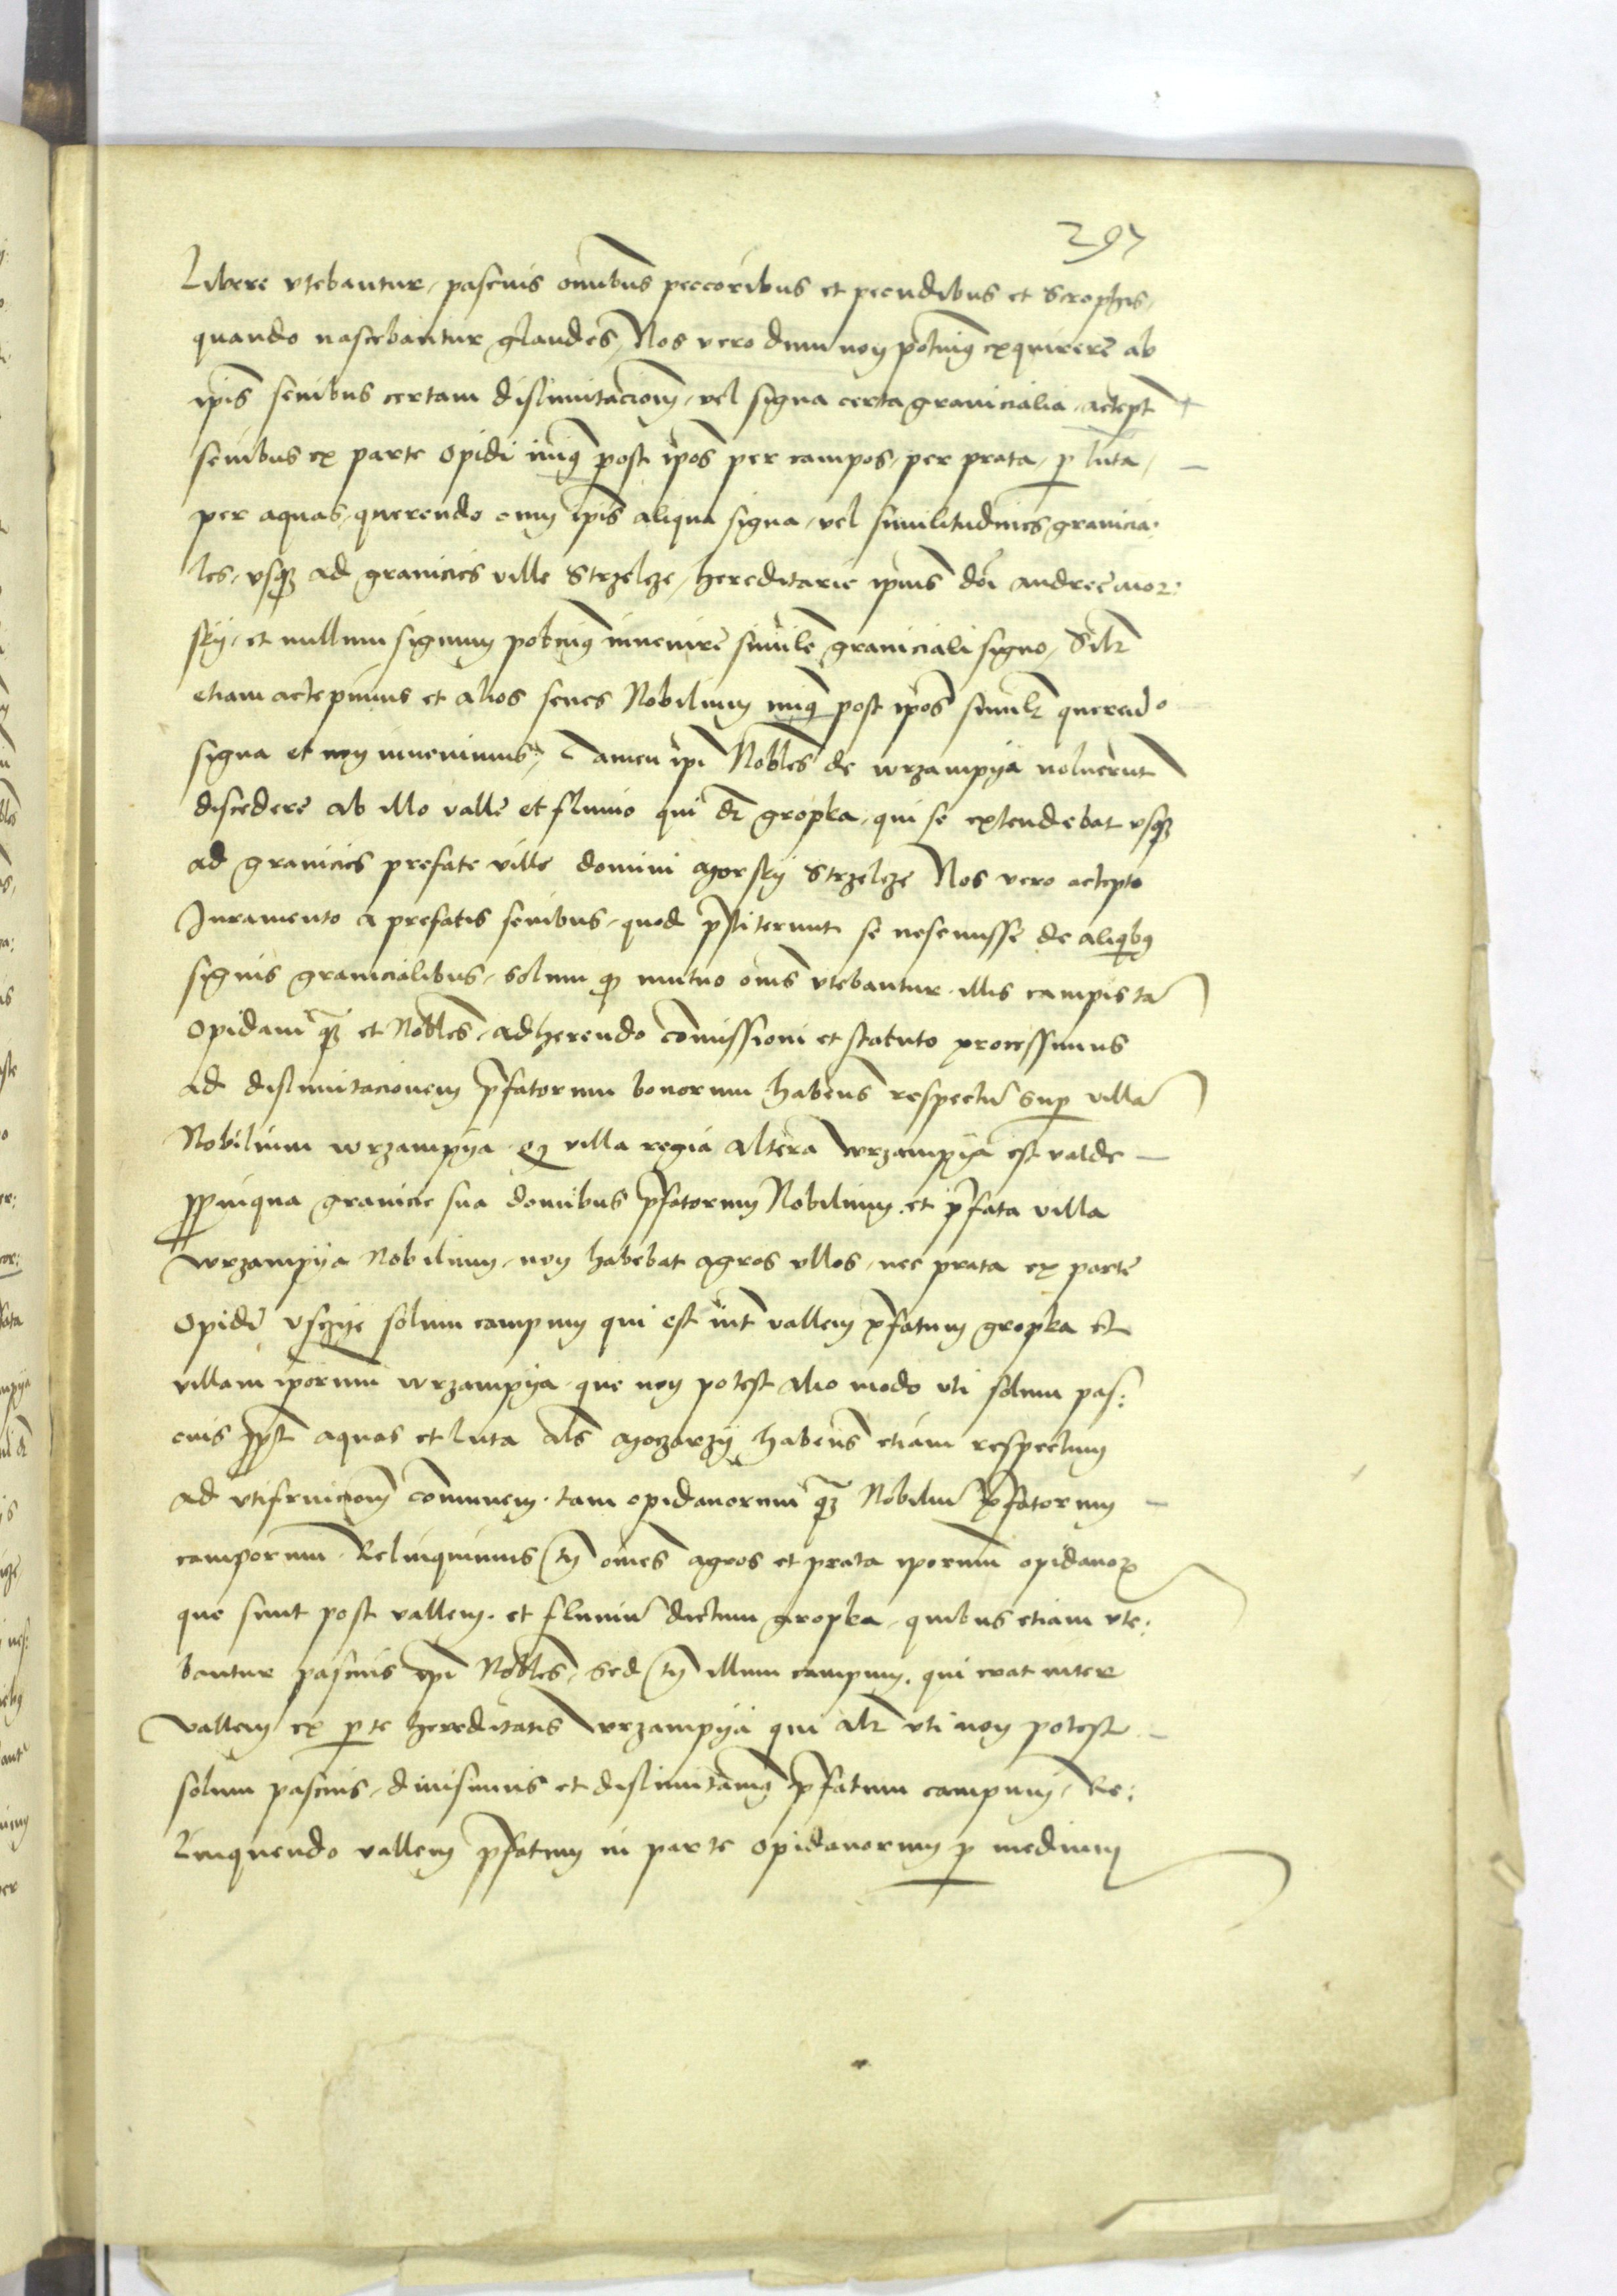 297
Libere vtebantur, pascuis omībus peccoribus et pecudibus et scrophis,
quando nascebantur glandes, Nos vero dum non potuimꝰ exquirere ab
ipīs senibus certam dislimitacionē, vel signa certa granicialia, accept
senibus ex parte opidi iuimꝰ post ipōs per campos, per prata, p luta,
per aquas, querendo cum ipīs aliqua signa, vel similitudines granicia:
les, vsqȝ ad granicies ville Strzelcze, hereditarie ipius dōi andree mor:
skij, et nullum signum potuimꝰ inuenire simile graniciali signo, Silr
etiam accepimus et alios senes Nobilium iuimꝰ post ipōs similr querendo
signa et non inuenimus, Tamen ipī Nobles de wrzampija noluerunt
discedere ab illo valle et fluuio qui dr gropka, qui se extendebat vsqȝ
ad granicies prefate ville domini morskij Strzelcze Nos vero accepto
Juramento a prefatis senibus, quod pstiterunt se nescuisse de aliqibꝰ
signis granicialibus, solum qꝫ mutuo omēs vtebantur illis campis tā
opidani qȝ et Nobles, adherendo cōmissioni et statuto processimus
ad dislimitacionem pfatorum bonorum habens respectū sup villā
Nobilium wrzampija qꝫ villa regia altera wrzampija est valde
ppinqua granicie sua domibus pfatorum Nobilium et pfata villa
wrzampija Nobilium, non habebat agros vllos, nec prata ex parte
opidi vsczije solum campum qui est int vallem pfatum gropka et
villam ipōrum wrzampija, que non potest alio modo vti solum pas:
cuis ppt aquas et luta als moczarzij habens etiam respectum
ad vtifruicionē cōmunem tam opidanorum qȝ Nobiliū pfatorum
camporum, Relinquimus tn omēs agros et prata ipōrum opidanoꝝ
que sunt post vallem et fluuiū dictum gropka, quibus etiam vte:
bantur pascuis ipī Nobles, Sed tn illum campum, qui erat inter
vallem ex pte hereditatis wrzampija qui alr vti non potest
solum pascuis, diuisimus et dislimitauimꝰ pfatum campum, Re:
linquendo vallem pfatum in parte opidanorum p medium